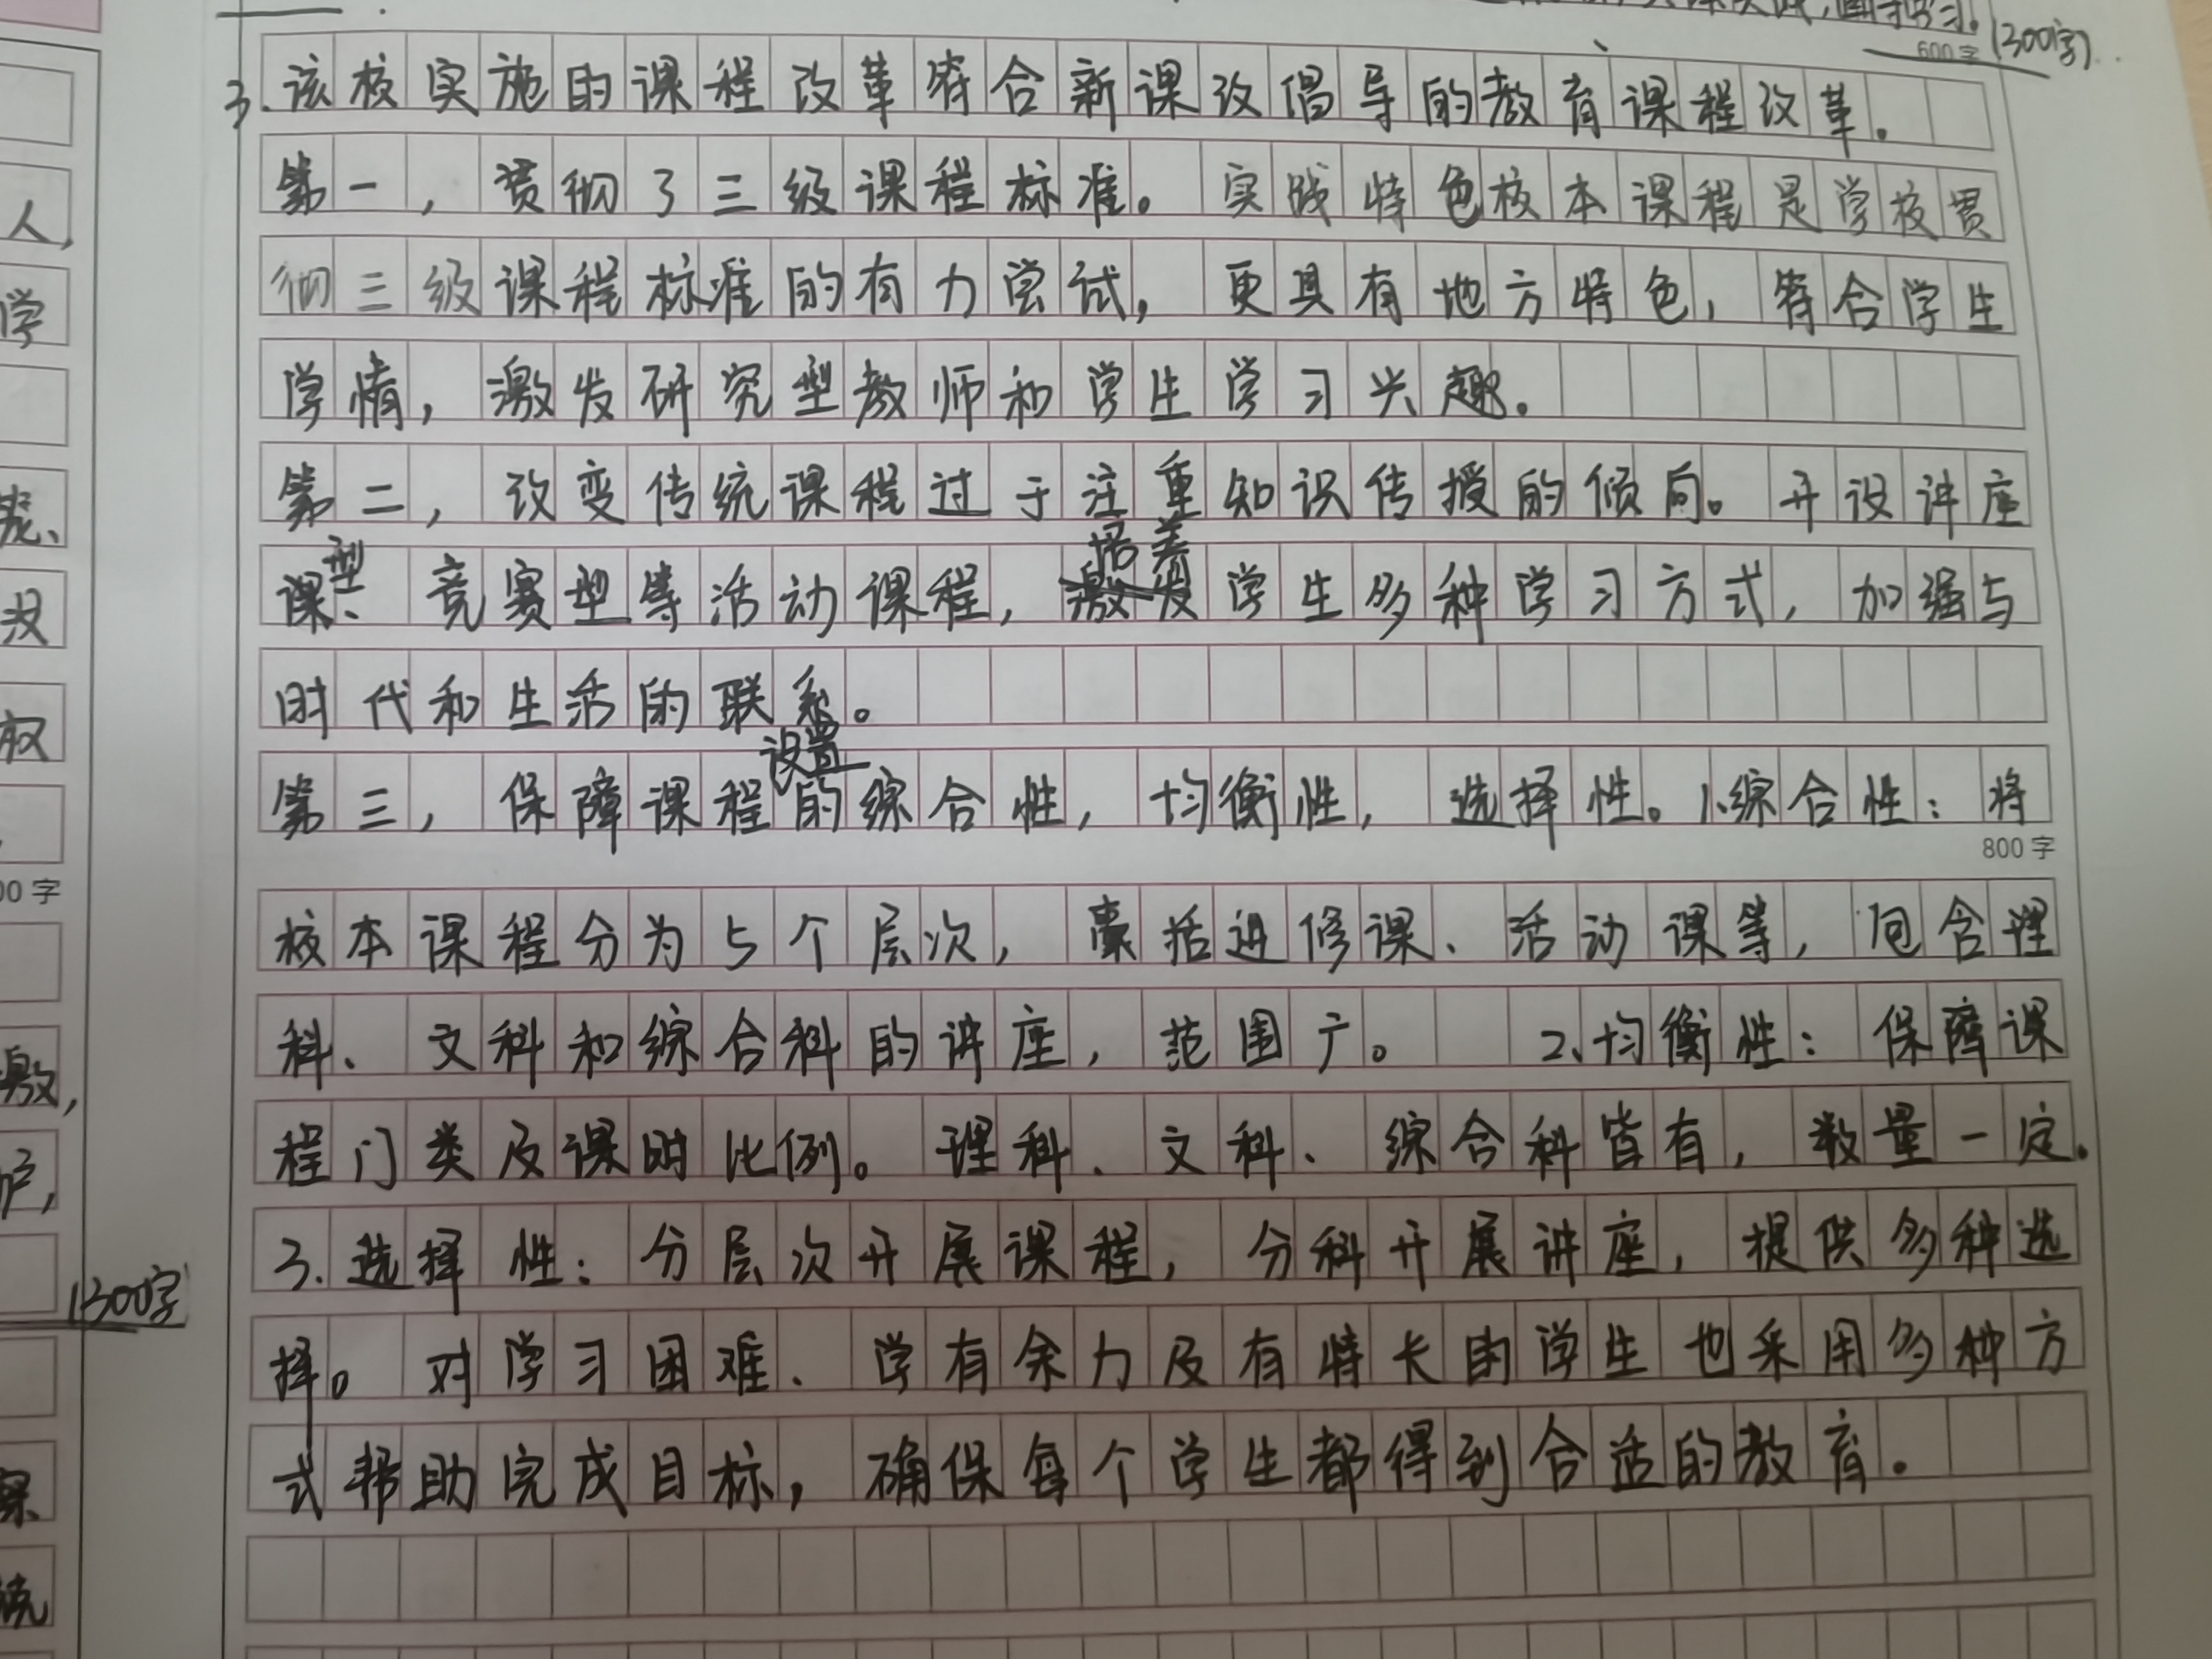 600字 (300字)
3.该校实施的课程改革符合新课改倡导的教育课程改革。
第一,贯彻了三级课程标准。实践特色校本课程是学校贯
彻三级课程标准的有力尝试,更具有地方特色,符合学生
学情,激发研究型教师和学生学习兴趣。
第二,改变传统课程过于注重知识传授的倾向。开设讲座
课型、竞赛型等活动课程,培养学生多种学习方式,加强与
时代和生活的联系。
第三,保障课程设置的综合性,均衡性,选择性。1.综合性:将
800字
校本课程分为5个层次,囊括进修课、活动课等,包含理
科、文科和综合科的讲座,范围广。 2.均衡性:保障课
程门类及课时比例。理科、文科、综合科皆有,数量一定。
3.选择性:分层次开展课程,分科开展讲座,提供多种选
择。对学习困难、学有余力及有特长的学生也采用多种方
式帮助完成目标,确保每个学生都得到合适的教育。
人,
学
权
00字
(300字)